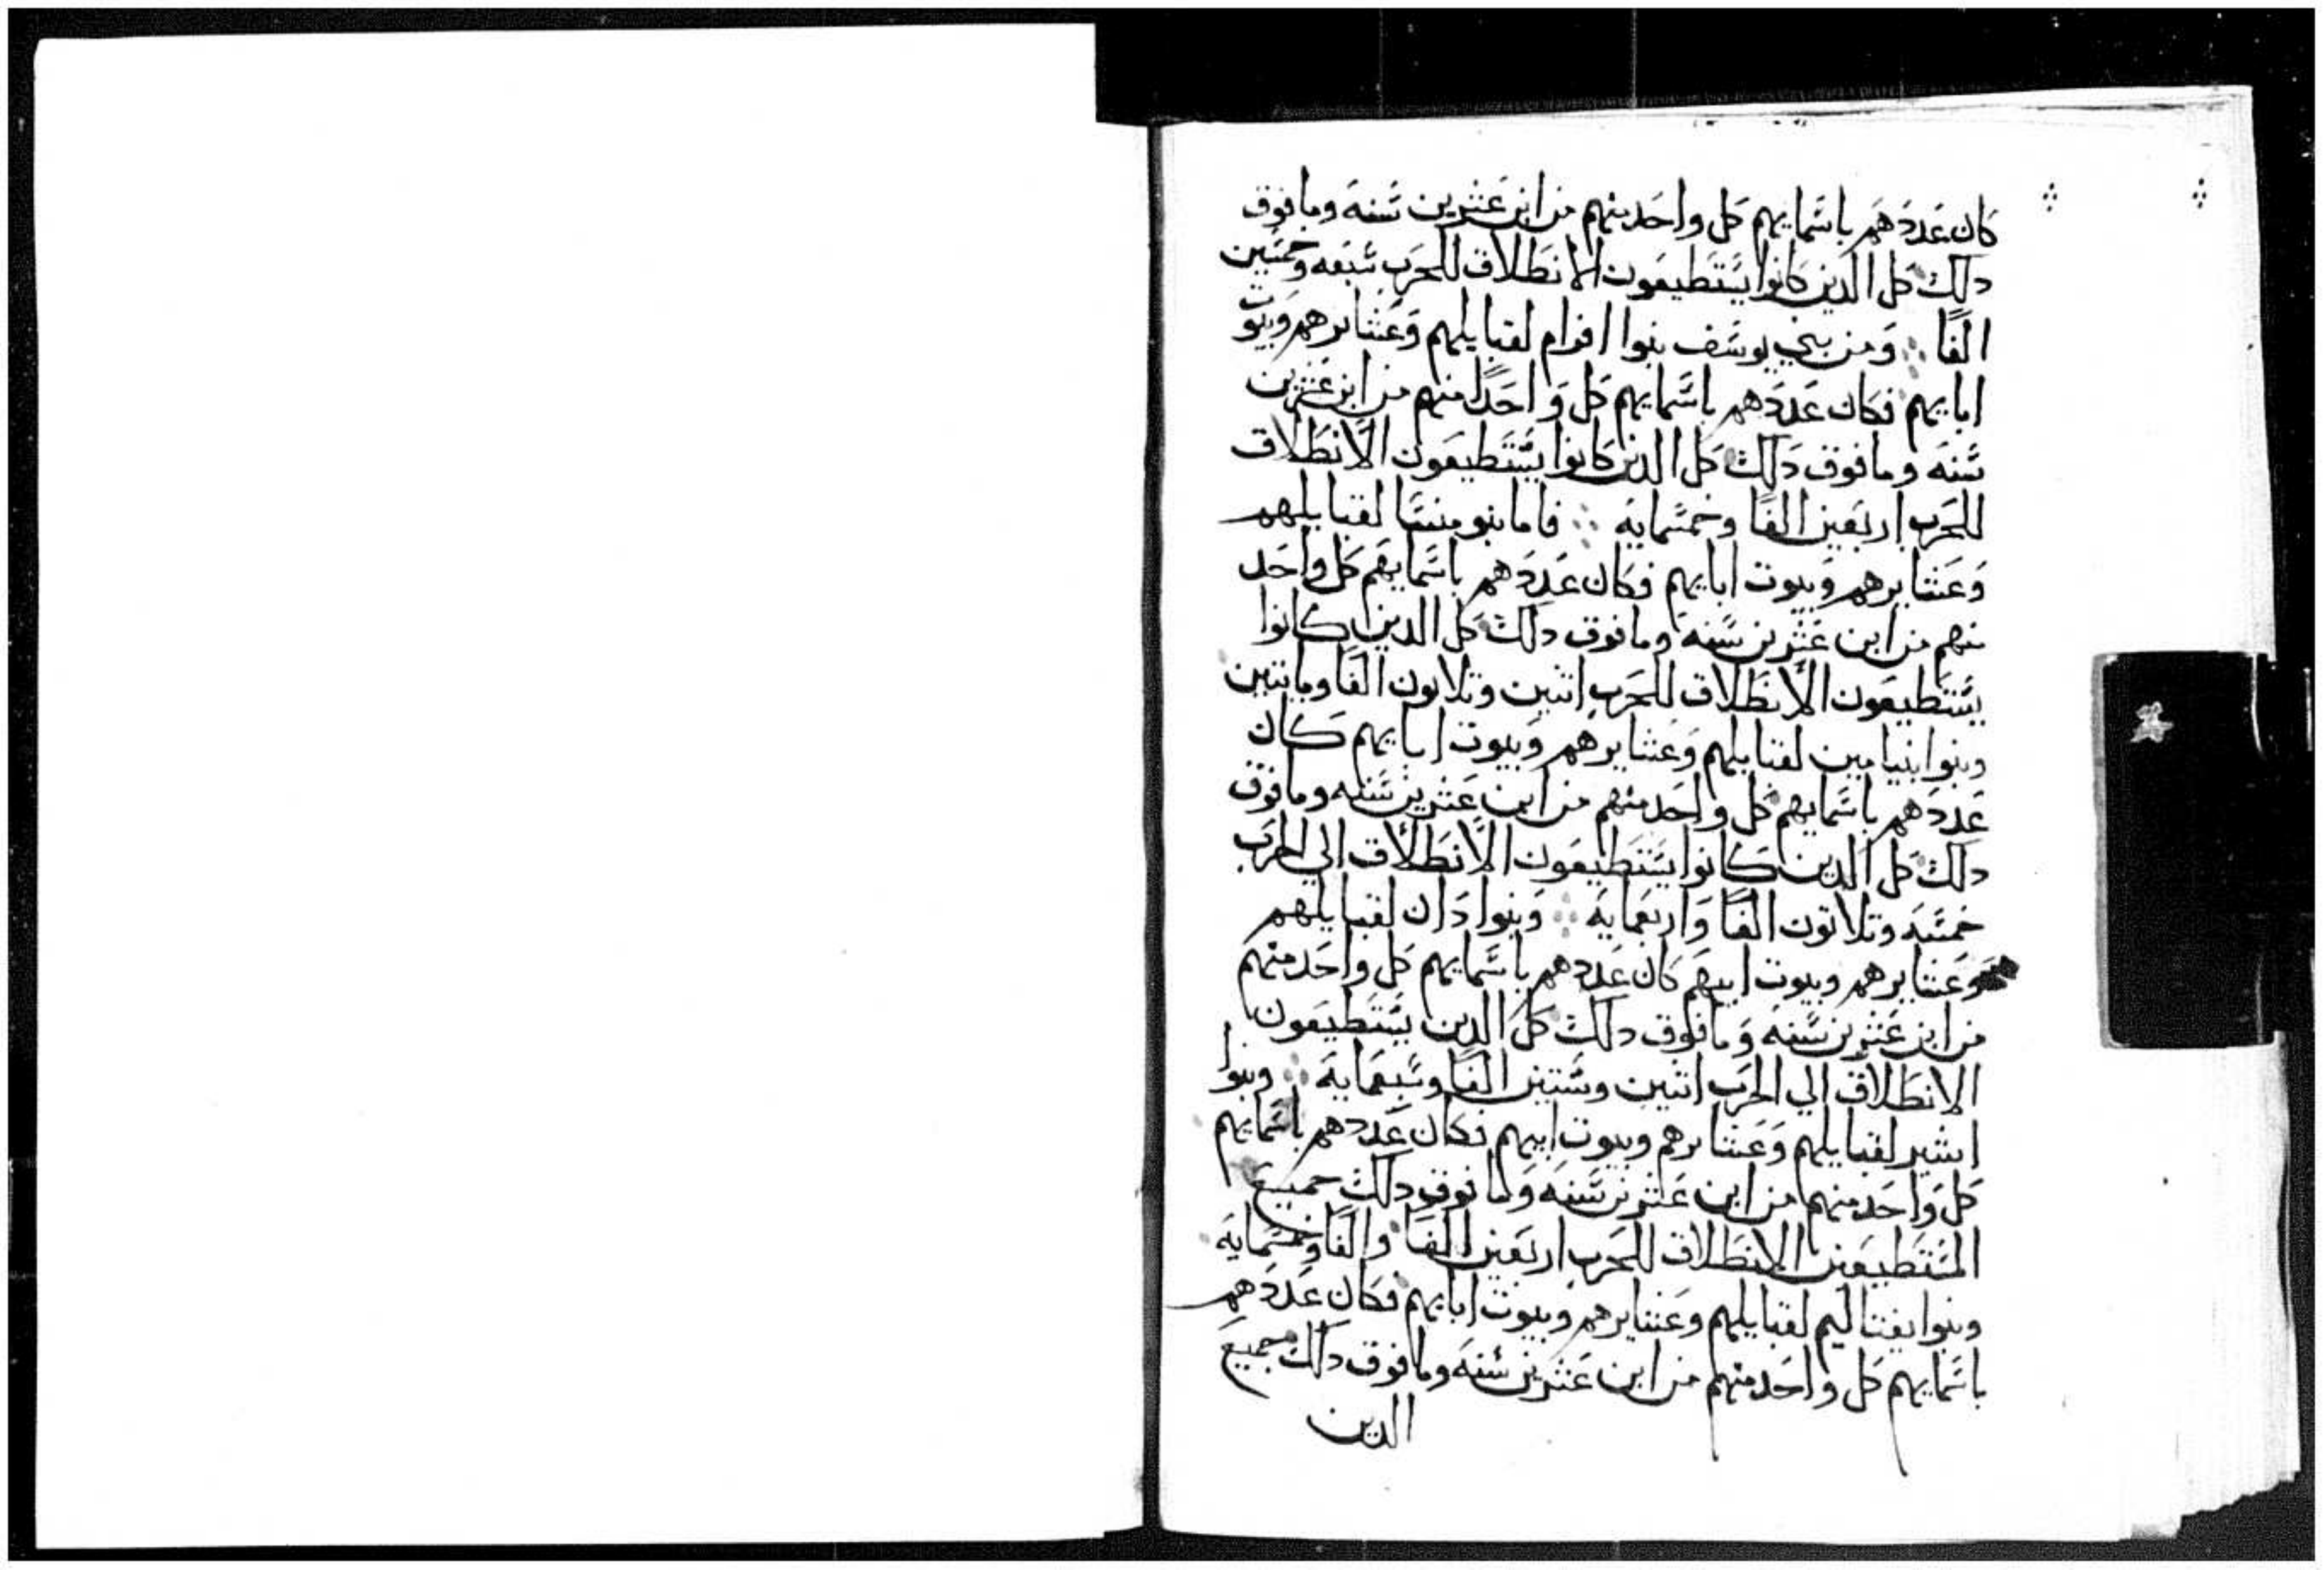 كان عددهم باسمايهم كل واحد منهم من ابن عشرين سنه وما فوق
دلك كل الدين كانوا يستطيعون الانطلاق للحرب سبعه وخمسين
الفًا ومن بني يوسف بنوا افرام لقبايلهم وعشايرهم وبيوت
ابايهم فكان عددهم باسمايهم كل واحدًا منهم من ابن عشرين
سنه وما فوق دلك كل الدين كانوا يستطيعون الانطلاق
للحرب اربعين الفًا وخمسمايه فاما بنو منسا لقبايلهم
وعشايرهم وبيوت ابايهم فكان عددهم باسمايهم كل واحد
منهم من ابن عشرين سنه وما فوق دلك كل الدين كانوا
يستطيعون الانطلاق للحرب اتنين وتلاتون الفًا وماتتين
وبنوا ابنيامين لقبايلهم وعشايرهم وبيوت ابايهم كان
عددهم باسمايهم كل واحد منهم من ابن عشرين سنه وما فوق
دلك كل الدين كانوا يستطيعون الانطلاق الي الحرب
خمسه وتلاتون الفًا واربعمايه وبنوا دان لقبايلهم
وعشايرهم وبيوت ابيهم كان عددهم باسمايهم كل واحد منهم
من ابن عشرين سنه وما فوق دلك كل الدين يستطيعون
الانطلاق الي الحرب اتنين وستين الفًا وسبعمايه وبنوا
اشير لقبايلهم وعشايرهم وبيوت ابيهم فكان عددهم باسمايهم
كل واحد منهم من ابن عشرين سنه وما فوق دلك جميع
المستطيعين الانطلاق للحرب اربعين الفًا والفًا وخمسمايه
وبنوا يفتاليم لقبايلهم وعشايرهم وبيوت ابايهم فكان عددهم
باسمايهم كل واحد منهم من ابن عشرين سنه وما فوق دلك جميع
الدين